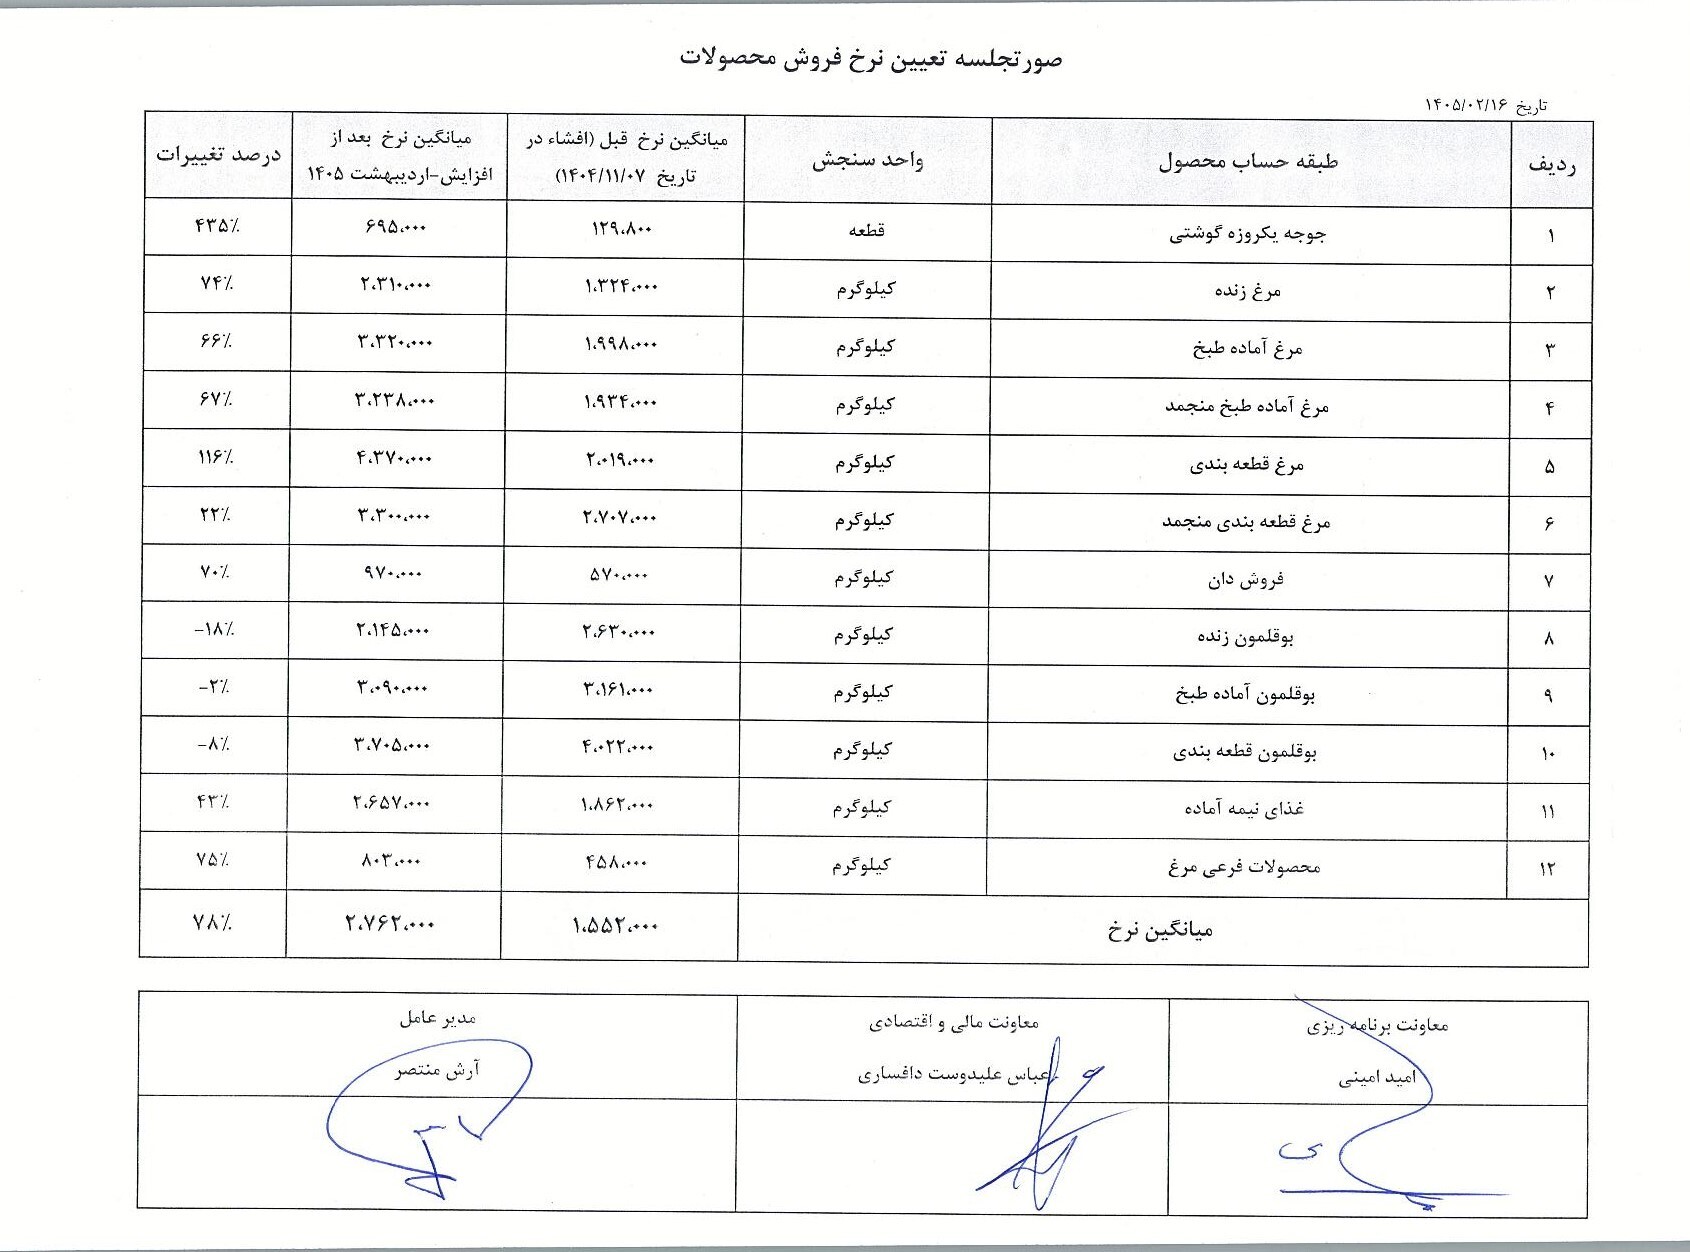 صورتجلسه تعیین نرخ فروش محصولات
تاریخ ۱۴۰۵/۰۲/۱۶
ردیف طبقه حساب محصول واحد سنجش میانگین نرخ قبل (افشاء در تاریخ ۱۴۰۴/۱۱/۰۷) میانگین نرخ بعد از افزایش-اردیبهشت ۱۴۰۵ درصد تغییرات
۱ جوجه یکروزه گوشتی قطعه ۱۲۹،۸۰۰ ۶۹۵،۰۰۰ ۴۳۵٪
۲ مرغ زنده کیلوگرم ۱،۳۲۴،۰۰۰ ۲،۳۱۰،۰۰۰ ۷۴٪
۳ مرغ آماده طبخ کیلوگرم ۱،۹۹۸،۰۰۰ ۳،۳۲۰،۰۰۰ ۶۶٪
۴ مرغ آماده طبخ منجمد کیلوگرم ۱،۹۳۴،۰۰۰ ۳،۲۳۸،۰۰۰ ۶۷٪
۵ مرغ قطعه بندی کیلوگرم ۲،۰۱۹،۰۰۰ ۴،۳۷۰،۰۰۰ ۱۱۶٪
۶ مرغ قطعه بندی منجمد کیلوگرم ۲،۷۰۷،۰۰۰ ۳،۳۰۰،۰۰۰ ۲۲٪
۷ فروش دان کیلوگرم ۵۷۰،۰۰۰ ۹۷۰،۰۰۰ ۷۰٪
۸ بوقلمون زنده کیلوگرم ۲،۶۳۰،۰۰۰ ۲،۱۴۵،۰۰۰ -۱۸٪
۹ بوقلمون آماده طبخ کیلوگرم ۳،۱۶۱،۰۰۰ ۳،۰۹۰،۰۰۰ -۲٪
۱۰ بوقلمون قطعه بندی کیلوگرم ۴،۰۲۲،۰۰۰ ۳،۷۰۵،۰۰۰ -۸٪
۱۱ غذای نیمه آماده کیلوگرم ۱،۸۶۲،۰۰۰ ۲،۶۵۷،۰۰۰ ۴۳٪
۱۲ محصولات فرعی مرغ کیلوگرم ۴۵۸،۰۰۰ ۸۰۳،۰۰۰ ۷۵٪
میانگین نرخ ۱،۵۵۲،۰۰۰ ۲،۷۶۲،۰۰۰ ۷۸٪
معاونت برنامه ریزی معاونت مالی و اقتصادی مدیر عامل
امید امینی عباس علیدوست دافساری آرش منتصر